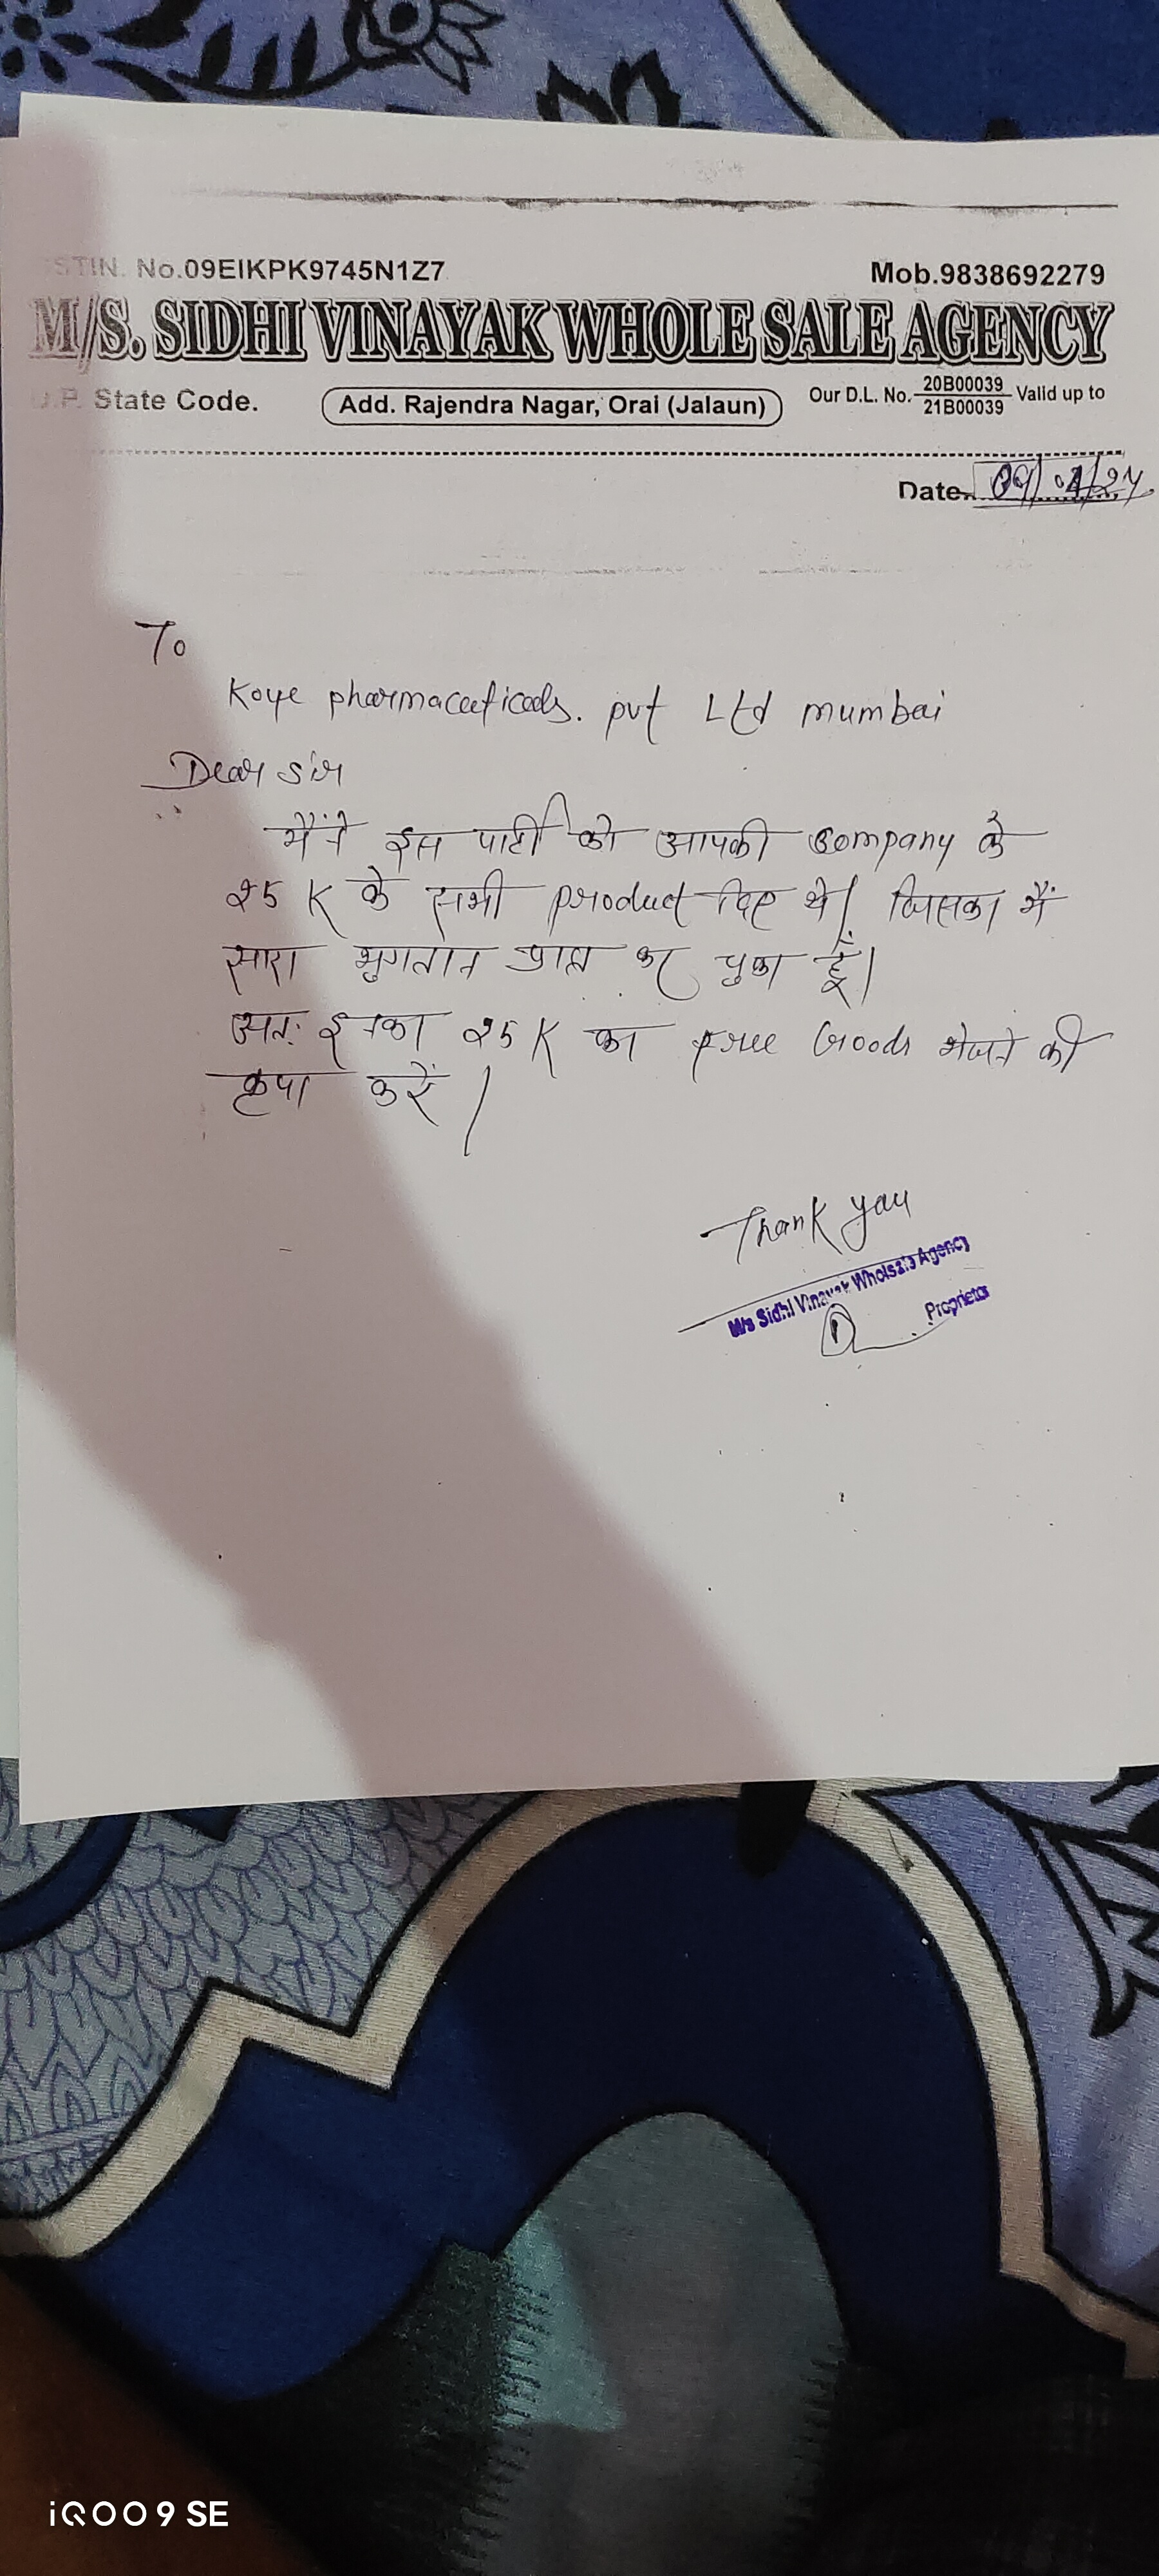 GSTIN. No.09EIKPK9745N1Z7 Mob.9838692279
M/S. SIDHI VINAYAK WHOLE SALE AGENCY
U.P. State Code. Add. Rajendra Nagar, Orai (Jalaun) Our D.L. No. 20B00039 / 21B00039 Valid up to
Date.
To
Koye pharmaceuticals. pvt Ltd mumbai
Dear sir
मैंने इस पार्टी को आपकी Company के
25 K के सभी product दिए थे। जिसका मैं
सारा भुगतान प्राप्त कर चुका हूँ।
अतः इनका 25 K का free Goods भेजने की
कृपा करें।
Thank you
M/s Sidhi Vinayak Wholsale Agency
Proprietor
iQOO 9 SE